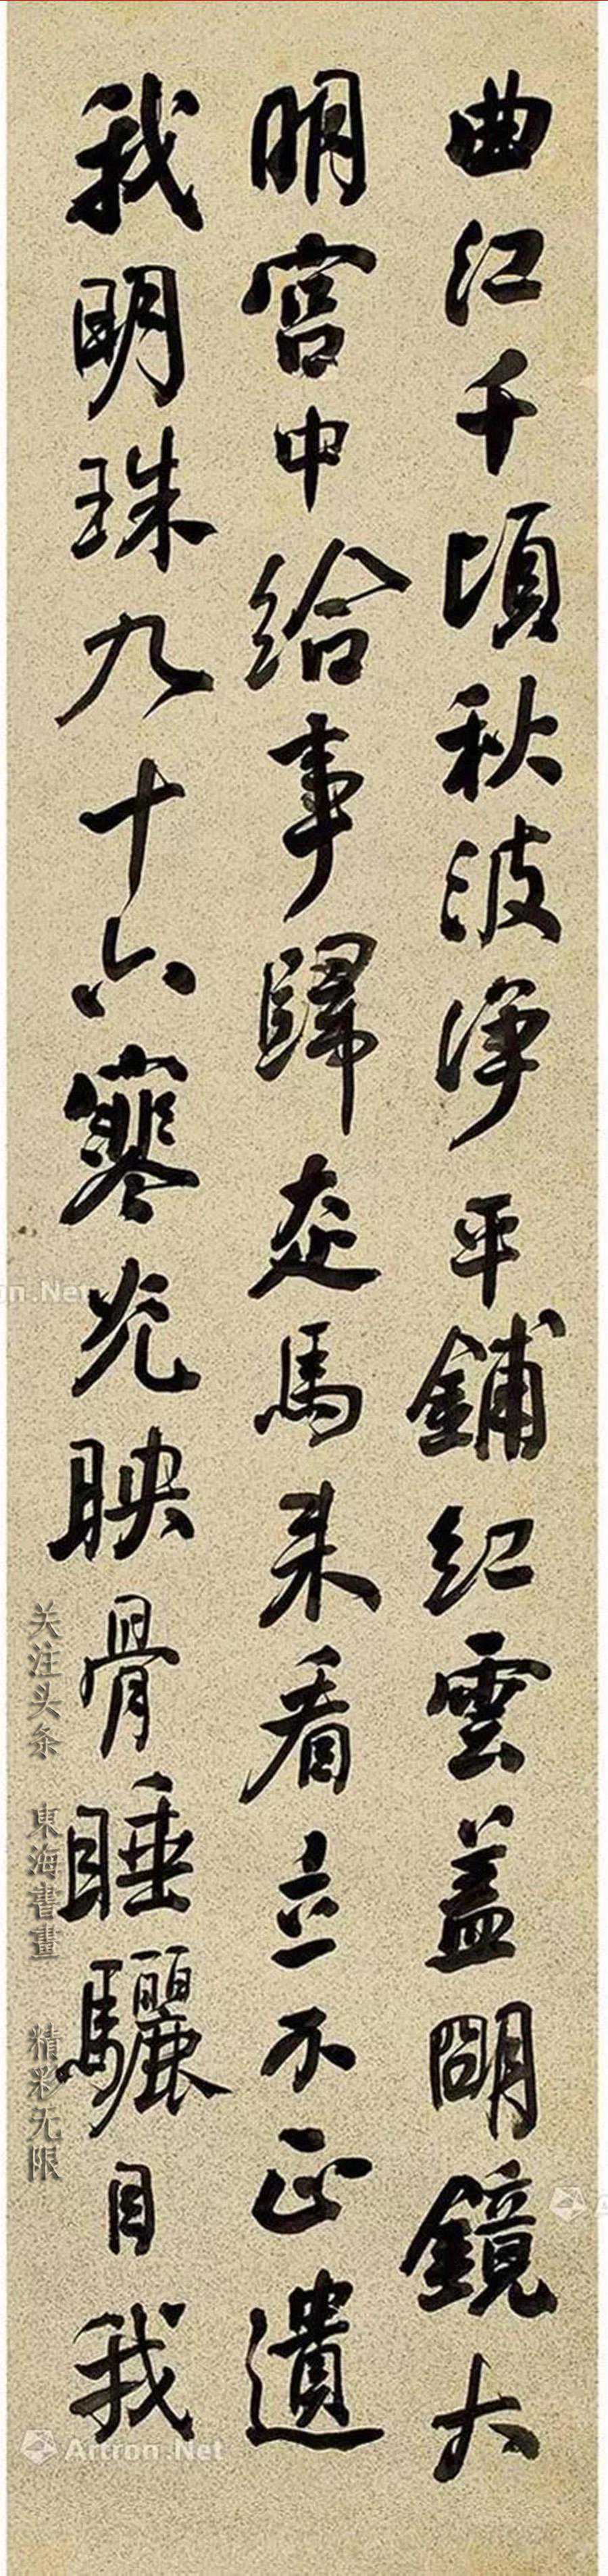 曲江千頃秋波淨平鋪紅雲蓋明鏡大
明宮中給事歸走馬来看立不正遺
我明珠九十六寒光映骨睡驪目我
关注头条 東海書畫 精彩无限
Artron.Net